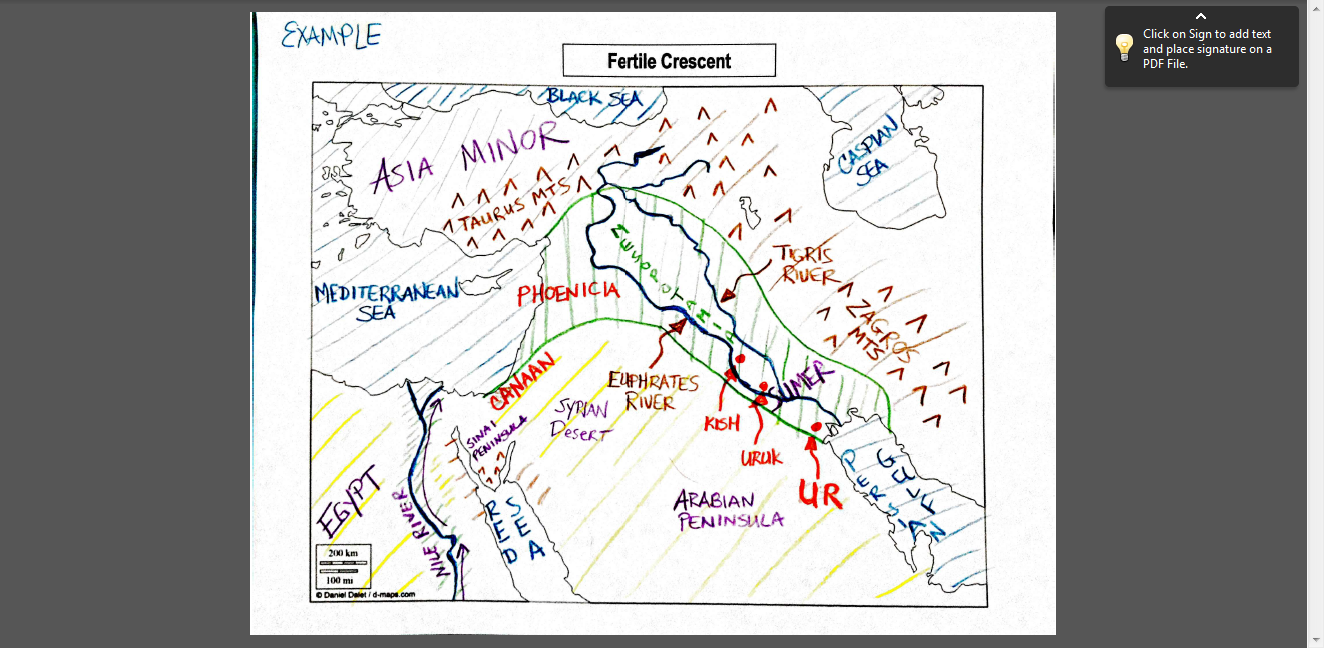 EXAMPLE
Click on Sign to add text
and place signature on a
PDF File.
Fertile Crescent
BLACK SEA
ASIA MINOR
CASPIAN
SEA
TAURUS MTS
MESOPOTAMIA
TIGRIS
RIVER
MEDITERRANEAN
SEA
PHOENICIA
ZAGROS
MTS
CANAAN
EUPHRATES
RIVER
SUMER
SYRIAN
DESERT
KISH
SINAI
PENINSULA
URUK
EGYPT
NILE RIVER
RED
SEA
ARABIAN
PENINSULA
UR
PERSIAN
GULF
200 km
100 mi
© Daniel Dalet / d-maps.com